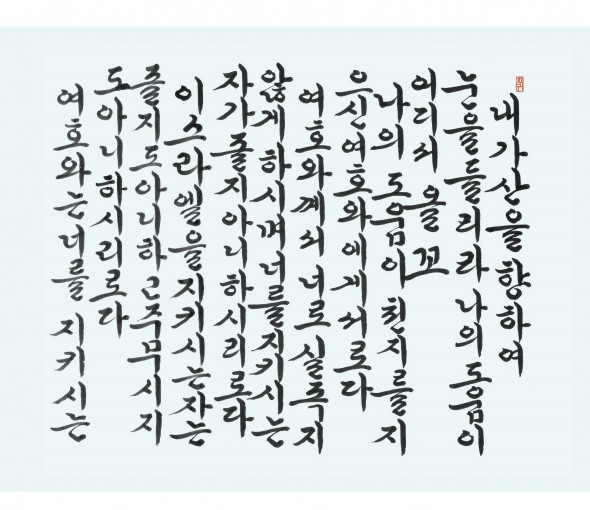 내가산을향하여
눈을들리라 나의 도움이
어디서 올꼬
나의 도움이 천지를지
으신여호와에게서로다
여호와께서 너로 실족지
않게하시며너를지키시는
자가 졸지아니하시리로다
이스라엘을지키시는자는
졸지도아니하고주무시지
도아니하시리로다
여호와는너를 지키시는